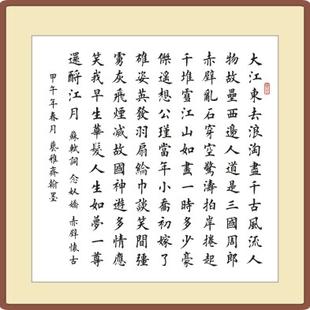 大江東去浪淘盡千古風流人
物故壘西邊人道是三國周郎
赤壁亂石穿空驚濤拍岸捲起
千堆雪江山如畫一時多少豪
傑遙想公瑾當年小喬初嫁了
雄姿英發羽扇綸巾談笑間彊
虜灰飛煙滅故國神遊多情應
笑我早生華髮人生如夢一尊
還酹江月 蘇軾詞 念奴嬌 赤壁懷古
甲午年春月 藝雅齋翰墨